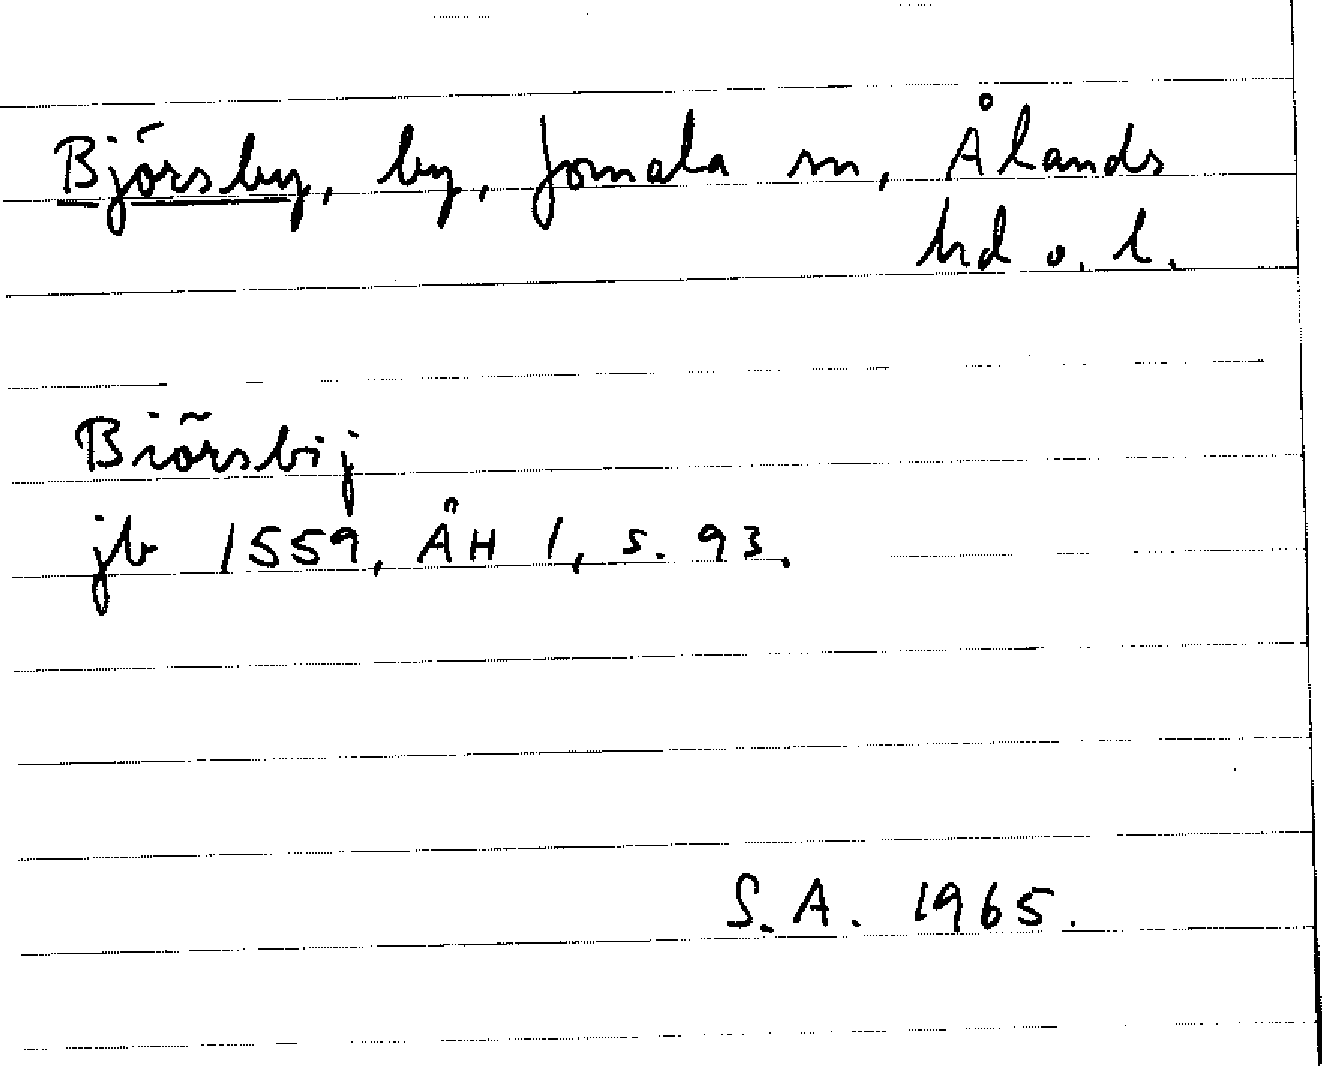 Björsby, by, Jomala sn, Ålands
hd o. l.
Biörsbij
jb 1559, ÅH 1, s. 93.
S.A. 1965.